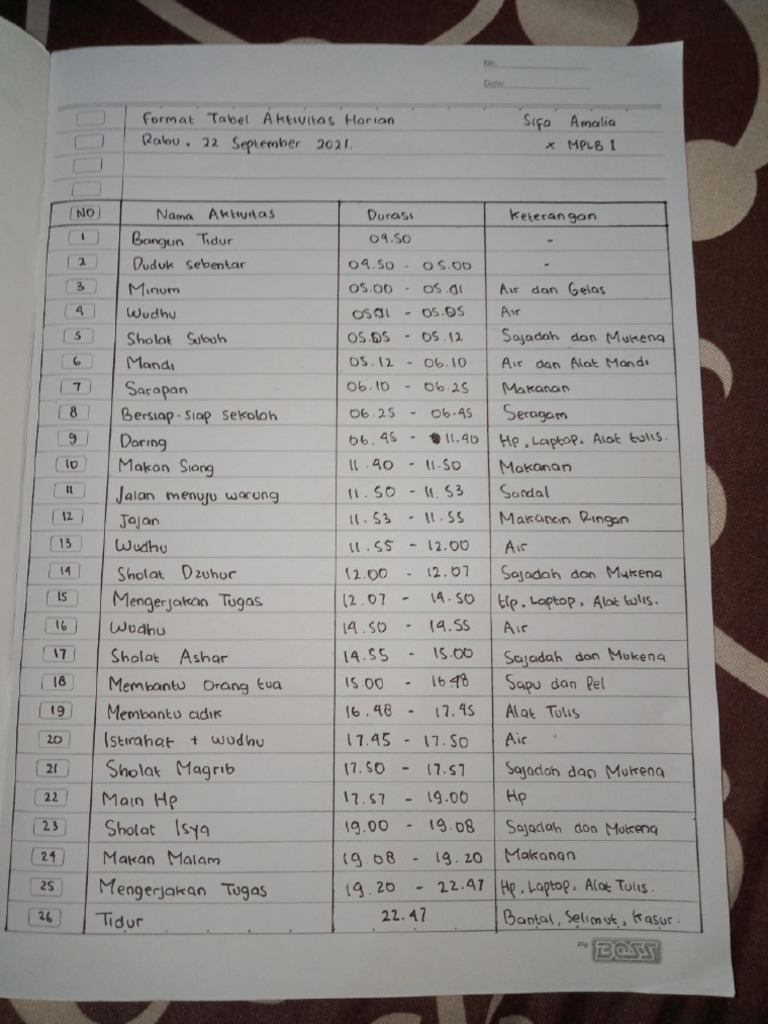 No.
Date:
Format Tabel Aktivitas Harian Sifa Amalia
Rabu, 22 September 2021. X MPLB 1
NO Nama Aktivitas Durasi Keterangan
1 Bangun Tidur 04.50 -
2 Duduk sebentar 04.50 - 05.00 -
3 Minum 05.00 - 05.01 Air dan Gelas
4 Wudhu 05.01 - 05.05 Air
5 Sholat Subuh 05.05 - 05.12 Sajadah dan Mukena
6 Mandi 05.12 - 06.10 Air dan Alat Mandi
7 Sarapan 06.10 - 06.25 Makanan
8 Bersiap-siap sekolah 06.25 - 06.45 Seragam
9 Daring 06.45 - 11.40 Hp, Laptop, Alat tulis.
10 Makan Siang 11.40 - 11.50 Makanan
11 Jalan menuju warung 11.50 - 11.53 Sandal
12 Jajan 11.53 - 11.55 Makanan Ringan
13 Wudhu 11.55 - 12.00 Air
14 Sholat Dzuhur 12.00 - 12.07 Sajadah dan Mukena
15 Mengerjakan Tugas 12.07 - 14.50 Hp, Laptop, Alat tulis.
16 Wudhu 14.50 - 14.55 Air
17 Sholat Ashar 14.55 - 15.00 Sajadah dan Mukena
18 Membantu orang tua 15.00 - 16.48 Sapu dan Pel
19 Membantu adik 16.48 - 17.45 Alat Tulis
20 Istirahat + wudhu 17.45 - 17.50 Air
21 Sholat Magrib 17.50 - 17.57 Sajadah dan Mukena
22 Main Hp 17.57 - 19.00 Hp
23 Sholat Isya 19.00 - 19.08 Sajadah dan Mukena
24 Makan Malam 19.08 - 19.20 Makanan
25 Mengerjakan Tugas 19.20 - 22.47 Hp, Laptop, Alat Tulis.
26 Tidur 22.47 Bantal, Selimut, Kasur.
Big BOSS